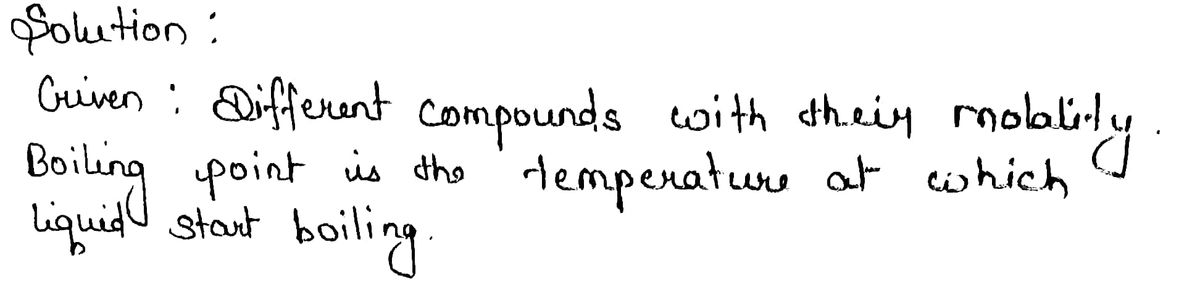 Solution :
Given : Different compounds with their molality.
Boiling point is the temperature at which
liquid start boiling.